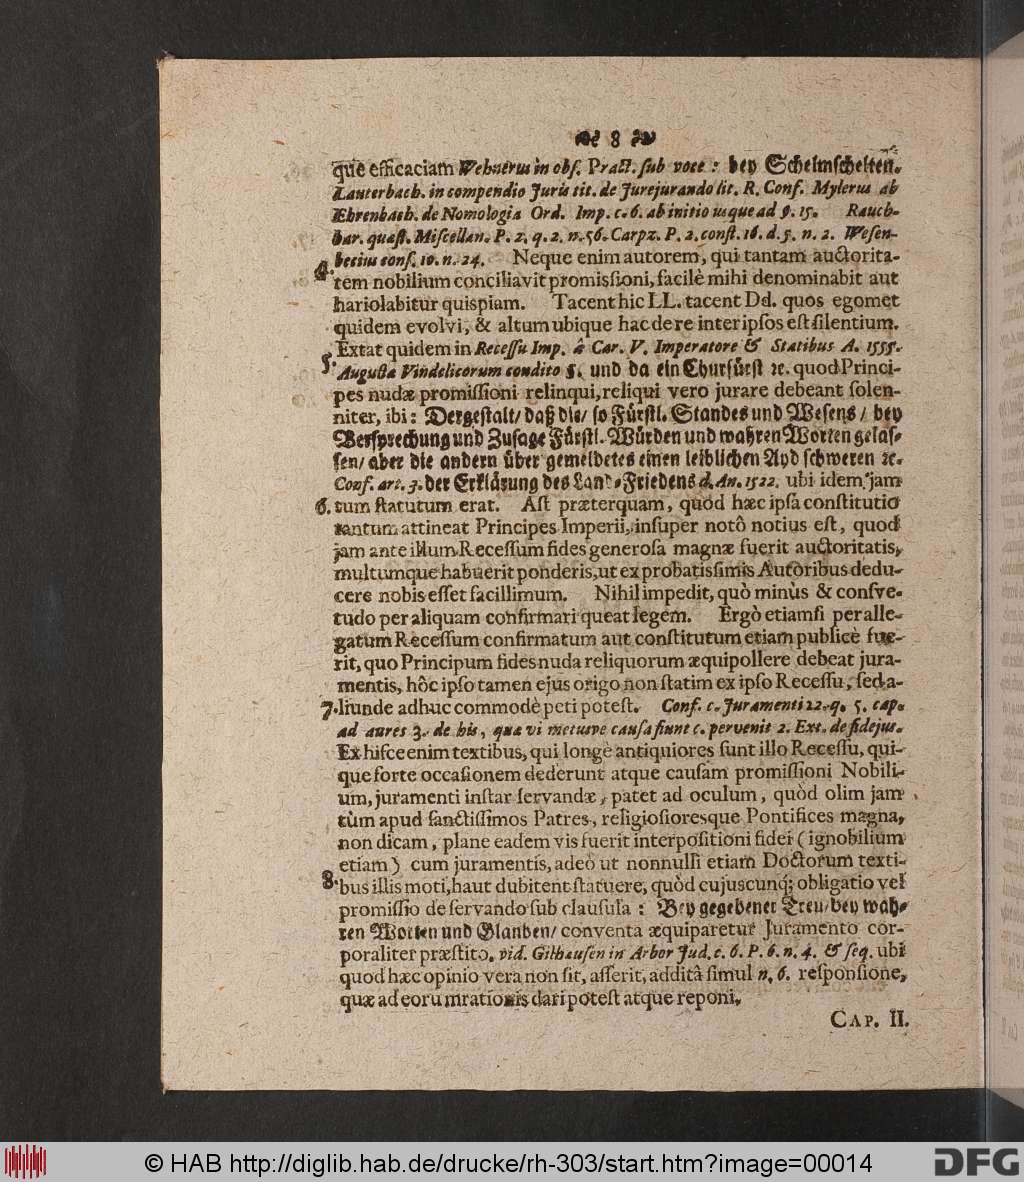 8
que efficaciam Wehnerus in obs. Pract. sub voce : bey Schelmschelten.
Lauterbach. in compendio Juris tit. de Jurejurando lit. R. Conf. Mylerus ab
Ehrenbach. de Nomologia Ord. Imp. c. 6. ab initio usque ad §. 15. Rauch-
bar. quæst. Miscellan. P. 2. q. 2. n. 56. Carpz. P. 2. const. 16. d. 5. n. 2. Wesen-
4. becius cons. 10. n. 24. Neque enim autorem, qui tantam auctorita-
tem nobilium conciliavit promissioni, facilè mihi denominabit aut
hariolabitur quispiam. Tacent hic LL. tacent Dd. quos egomet
quidem evolvi, & altum ubique hac de re inter ipsos est silentium.
5. Extat quidem in Recessu Imp. â Car. V. Imperatore & Statibus A. 1555.
Augusta Vindelicorum condito §. und da ein Churfürst ꝛc. quod Princi-
pes nudæ promissioni relinqui, reliqui vero jurare debeant solen-
niter, ibi: Dergestalt/ daß die/ so Fürstl. Standes und Wesens/ bey
Versprechung und Zusage Fürstl. Würden und wahren Worten gelas-
sen/ aber die andern über gemeldetes einen leiblichen Ayd schweren ꝛc.
Conf. art. 3. der Erklärung des Land-Friedens d. An. 1522. ubi idem jam
6. tum statutum erat. Ast præterquam, quod hæc ipsa constitutio
tantum attineat Principes Imperii, insuper notô notius est, quod
jam ante illum Recessum fides generosa magnæ fuerit auctoritatis,
multumque habuerit ponderis, ut ex probatissimis Autoribus dedu-
cere nobis esset facillimum. Nihil impedit, quò minùs & consve-
tudo per aliquam confirmari queat legem. Ergò etiamsi per alle-
gatum Recessum confirmatum aut constitutum etiam publicè fue-
rit, quo Principum fides nuda reliquorum æquipollere debeat jura-
mentis, hôc ipso tamen ejus origo non statim ex ipso Recessu, sed a-
7. liunde adhuc commodè peti potest. Conf. c. Juramenti 22. q. 5. cap.
ad aures 3. de his, quæ vi metusve causa fiunt c. pervenit 2. Ext. de fidejus.
Ex hisce enim textibus, qui longè antiquiores sunt illo Recessu, qui-
que forte occasionem dederunt atque causam promissioni Nobili-
um, juramenti instar servandæ, patet ad oculum, quòd olim jam
tùm apud sanctissimos Patres, religiosioresque Pontifices magna,
non dicam, plane eadem vis fuerit interpositioni fidei ( ignobilium
etiam ) cum juramentis, adeò ut nonnulli etiam Doctorum texti-
8. bus illis moti, haut dubitent statuere, quòd cujuscunq; obligatio vel
promissio de servando sub clausula : Bey gegebener Treu/ bey wah-
ren Worten und Glauben/ conventa æquiparetur Juramento cor-
poraliter præstito. vid. Gilhausen in Arbor Jud. c. 6. P. 6. n. 4. & seq. ubi
quod hæc opinio vera non sit, asserit, additâ simul n. 6. responsione,
quæ ad eorum rationis dari potest atque reponi.
CAP. II.
© HAB http://diglib.hab.de/drucke/rh-303/start.htm?image=00014
DFG